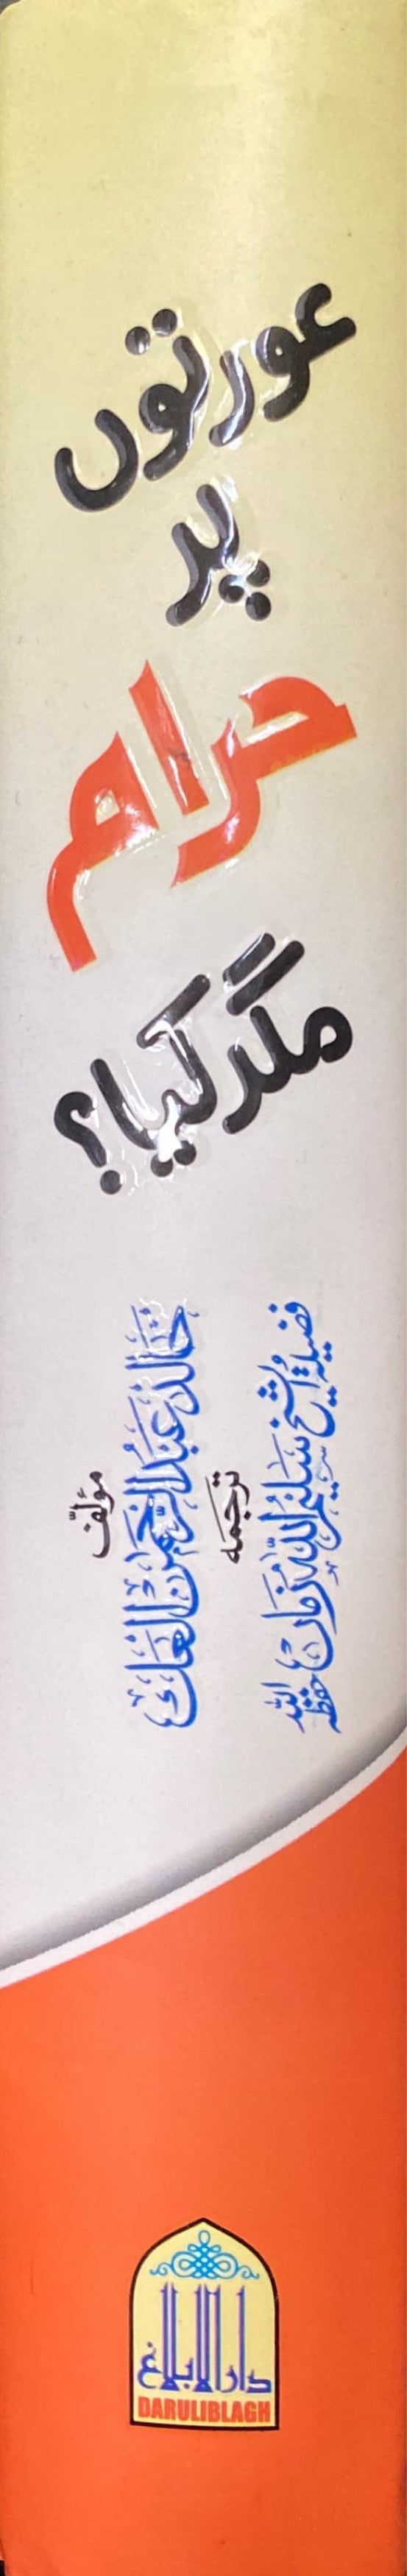 عورتوں
پر
حرام
مگر کیا؟
مؤلف
خالد عبدالرحمن العک
ترجمہ
فضیلۃ الشیخ سلیم اللہ زمان حفظہ اللہ
دارالابلاغ
DARULIBLAGH